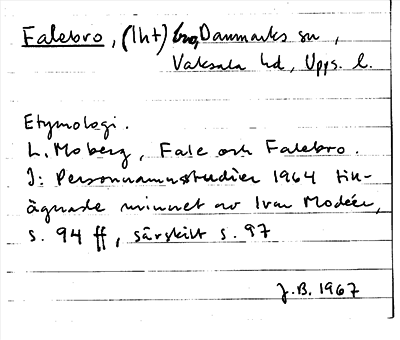 Falebro, (lht) bro, Danmarks sn,
Vaksala hd, Upps. l.
Etymologi.
L. Moberg, Fale och Falebro.
I: Personnamnsstudier 1964 till-
ägnade minnet av Ivar Modéer,
s. 94 ff, särskilt s. 97
J.B. 1967